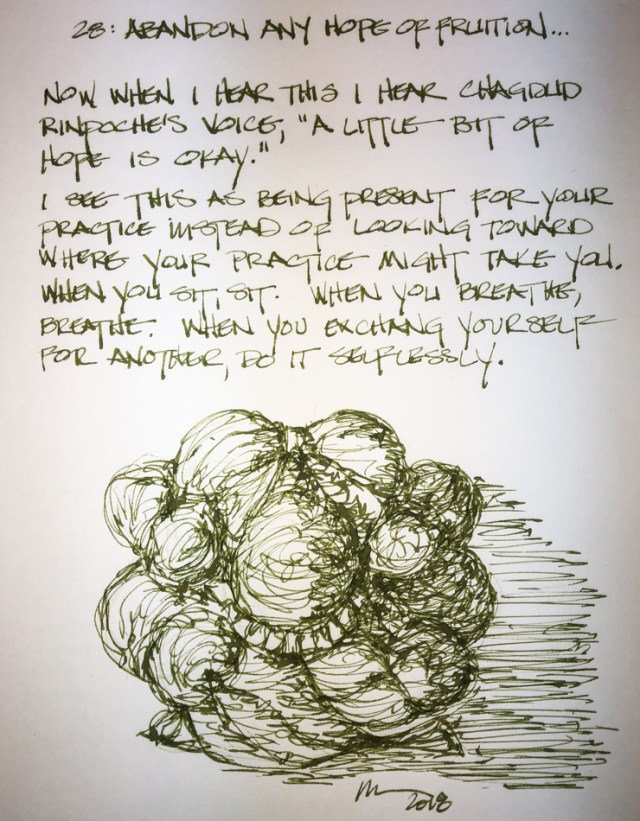 28: ABANDON ANY HOPE OF FRUITION...
NOW WHEN I HEAR THIS I HEAR CHAGDUD
RINPOCHE'S VOICE, "A LITTLE BIT OF
HOPE IS OKAY."
I SEE THIS AS BEING PRESENT FOR YOUR
PRACTICE INSTEAD OF LOOKING TOWARD
WHERE YOUR PRACTICE MIGHT TAKE YOU.
WHEN YOU SIT, SIT. WHEN YOU BREATHE,
BREATHE. WHEN YOU EXCHANG YOURSELF
FOR ANOTHER, DO IT SELFLESSLY.
2018